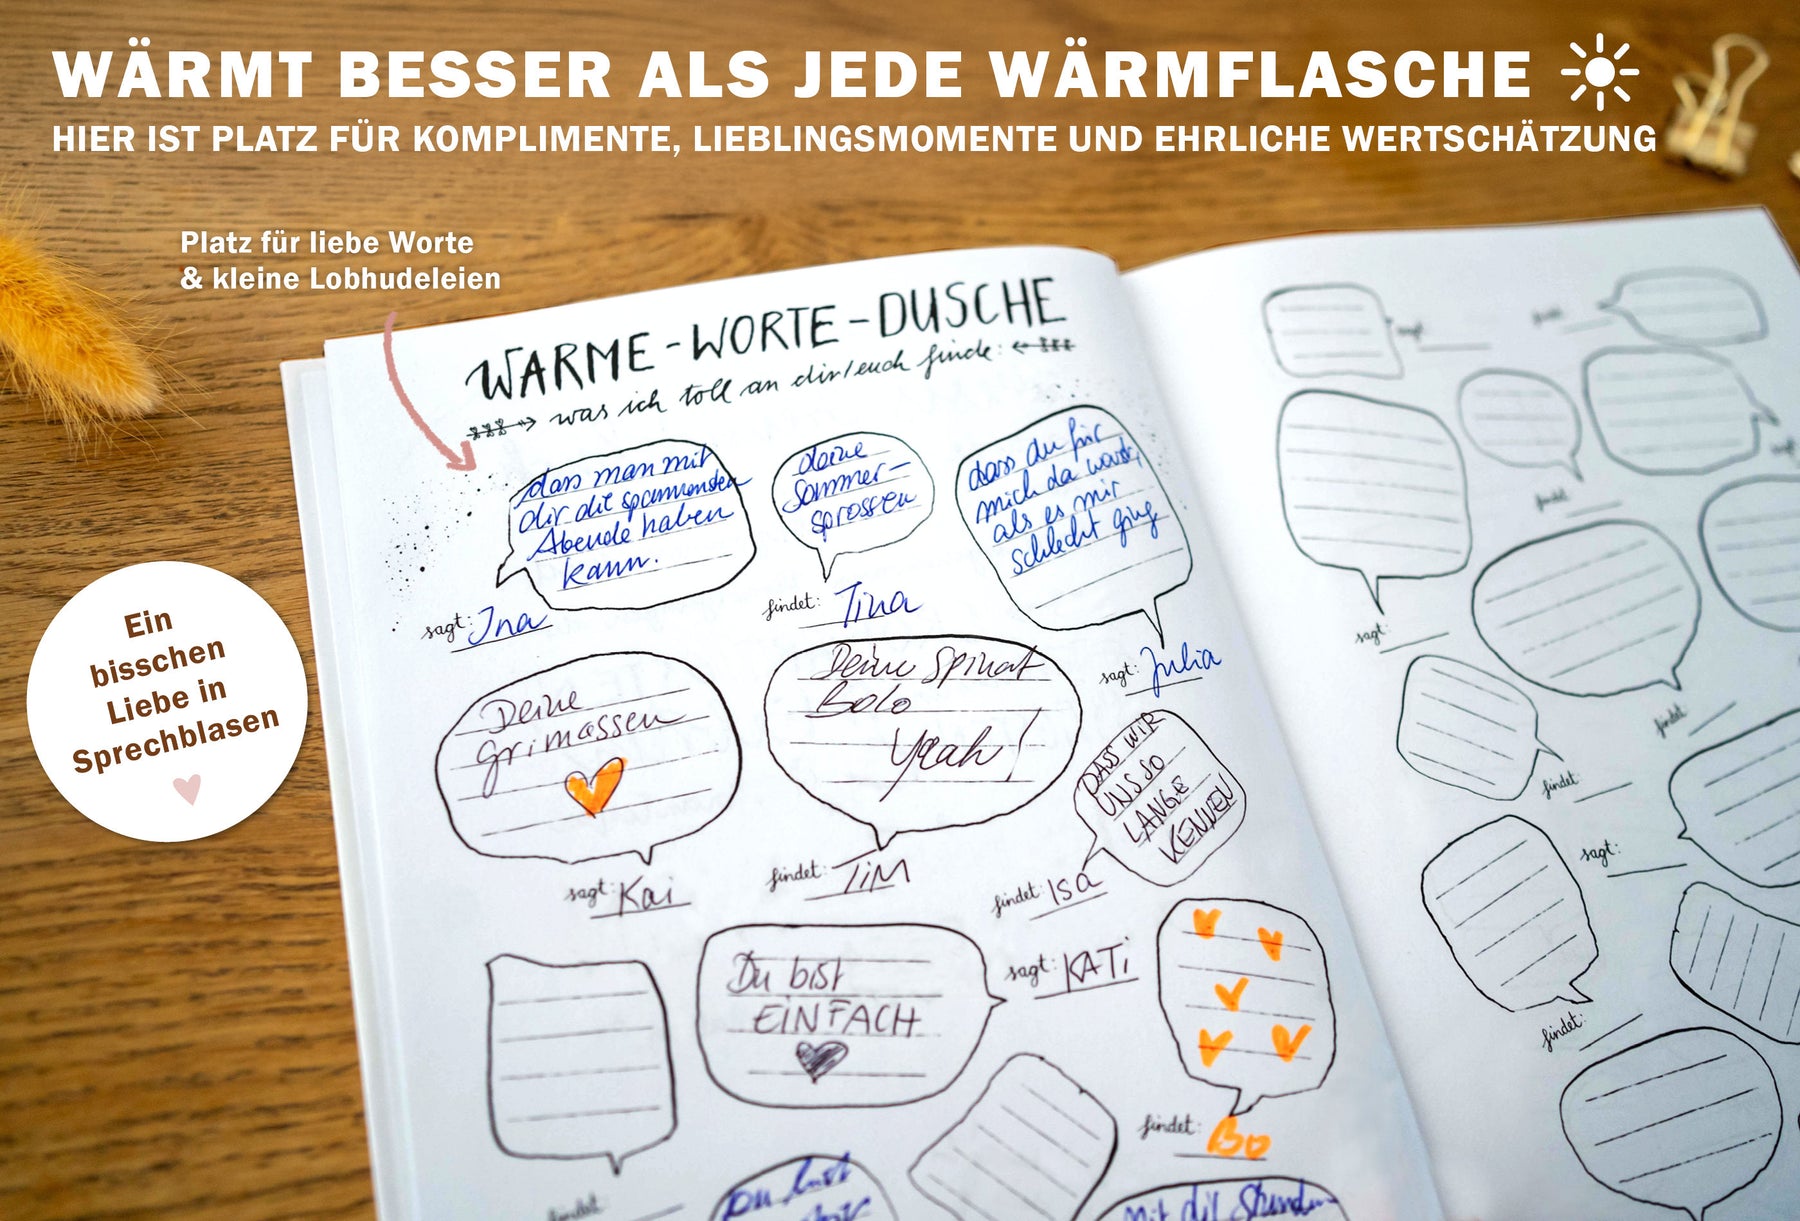 WÄRMT BESSER ALS JEDE WÄRMFLASCHE
HIER IST PLATZ FÜR KOMPLIMENTE, LIEBLINGSMOMENTE UND EHRLICHE WERTSCHÄTZUNG
Platz für liebe Worte
& kleine Lobhudeleien
WARME-WORTE-DUSCHE
was ich toll an dir/euch finde:
dass man mit
dir die spannensten
Abende haben
kann.
sagt: Ina
deine
Sommer-
sprossen
findet: Tina
dass du für
mich da warst,
als es mir
schlecht ging
sagt: Julia
Ein
bisschen
Liebe in
Sprechblasen
Deine
Grimassen
sagt: Kai
Deine Spinat
Bolo
Yeah!
findet: TIM
DASS WIR
UNS SO
LANGE
KENNEN
findet: ISA
Du bist
EINFACH
sagt: KATi
findet: Bo
findet:
Du bist
mit dir Stunden
sagt:
findet:
findet:
sagt:
findet:
findet:
sagt:
findet: